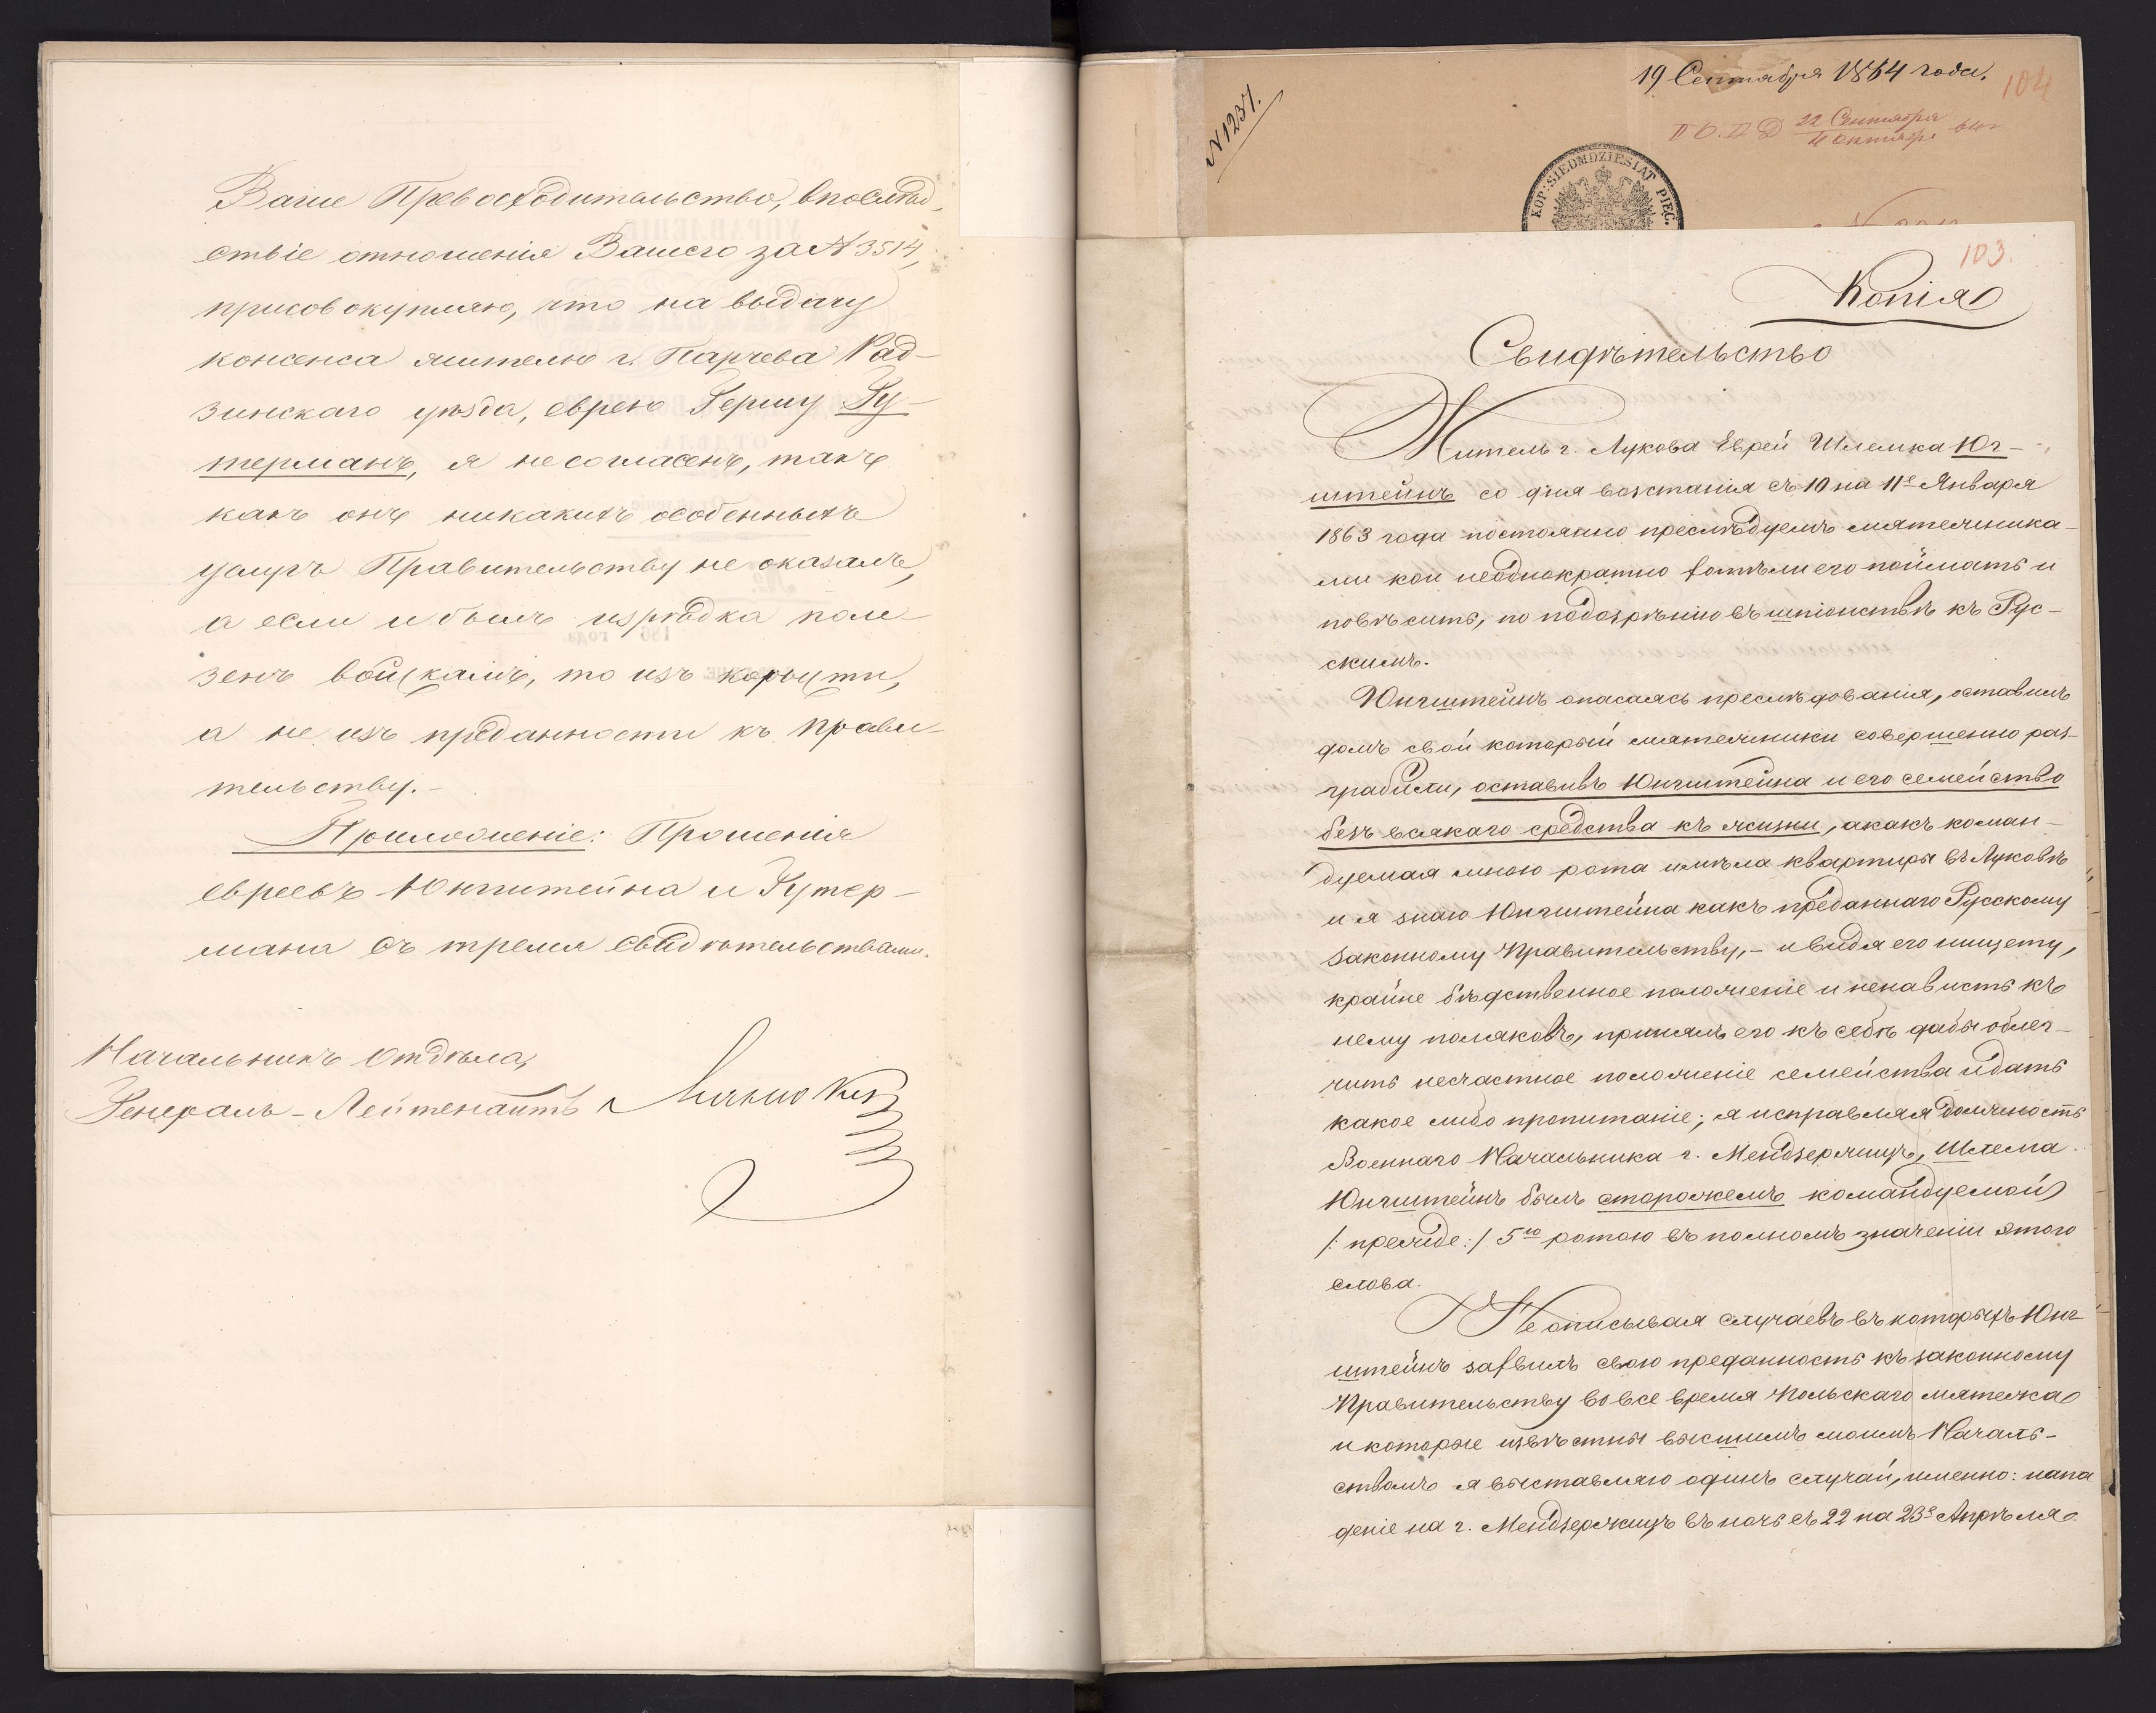 Ваше Превосходительство, впослѣд-
ствіе отношенія Вашего за № 3514,
присовокупляю, что на выдачу
консенса жителю г. Парчева Рад-
зинскаго уѣзда, еврею Гершу Гу-
терманъ, я не согласенъ, такъ
какъ онъ никакихъ особенныхъ
услугъ Правительству не оказалъ,
а если и былъ изрѣдка поле-
зенъ войскамъ, то изъ корысти,
а не изъ преданности къ прави-
тельству.-
Приложеніе: Прошенія
евреевъ Юнгштейна и Гутер-
мана съ тремя свидѣтельствами.
Начальникъ Отдѣла,
Генералъ-Лейтенантъ
19 Сентября 1864 года.
104
22 Сентября
4 Октября
№ 1237.
KOP: SIEDMDZIESIĄT PIĘĆ.
103.
Копія
Свидѣтельство
Житель г. Лукова Еврей Шлемка Юг-
штейнъ со дня возстанія съ 10 на 11е Января
1863 года постоянно преслѣдуемъ мятежника-
ми кои неоднократно хотѣли его поймать и
повѣсить, по подозрѣнію въ шпіонствѣ къ Рус-
скимъ.
Юнгштейнъ опасаясь преслѣдованія, оставилъ
домъ свой который мятежники совершенно раз-
грабили, оставивъ Юнгштейна и его семейство
безъ всякаго средства къ жизни, а какъ коман-
дуемая мною рота имѣла квартиры въ Луковѣ
и я знаю Юнгштейна какъ преданнаго Русскому
законному Правительству,- и видя его нищету,
крайне бѣдственное положеніе и ненависть къ
нему поляковъ, принялъ его къ себѣ дабы облег-
чить несчастное положеніе семейства и дать
какое либо пропитаніе; я исправляя должность
Военнаго Начальника г. Мендзержицъ, Шлема
Юнгштейнъ былъ сторожемъ командуемой
/: прежде :/ 5ю ротою въ полномъ значеніи этого
слова.
Не описывая случаевъ въ которыхъ Юнг-
штейнъ заявилъ свою преданность къ законному
Правительству во все время Польскаго мятежа
и которые извѣстны высшимъ моимъ Началь-
ствомъ я выставляю одинъ случай, именно: напа
деніе на г. Мендзержицъ въ ночь съ 22 на 23е Апрѣля